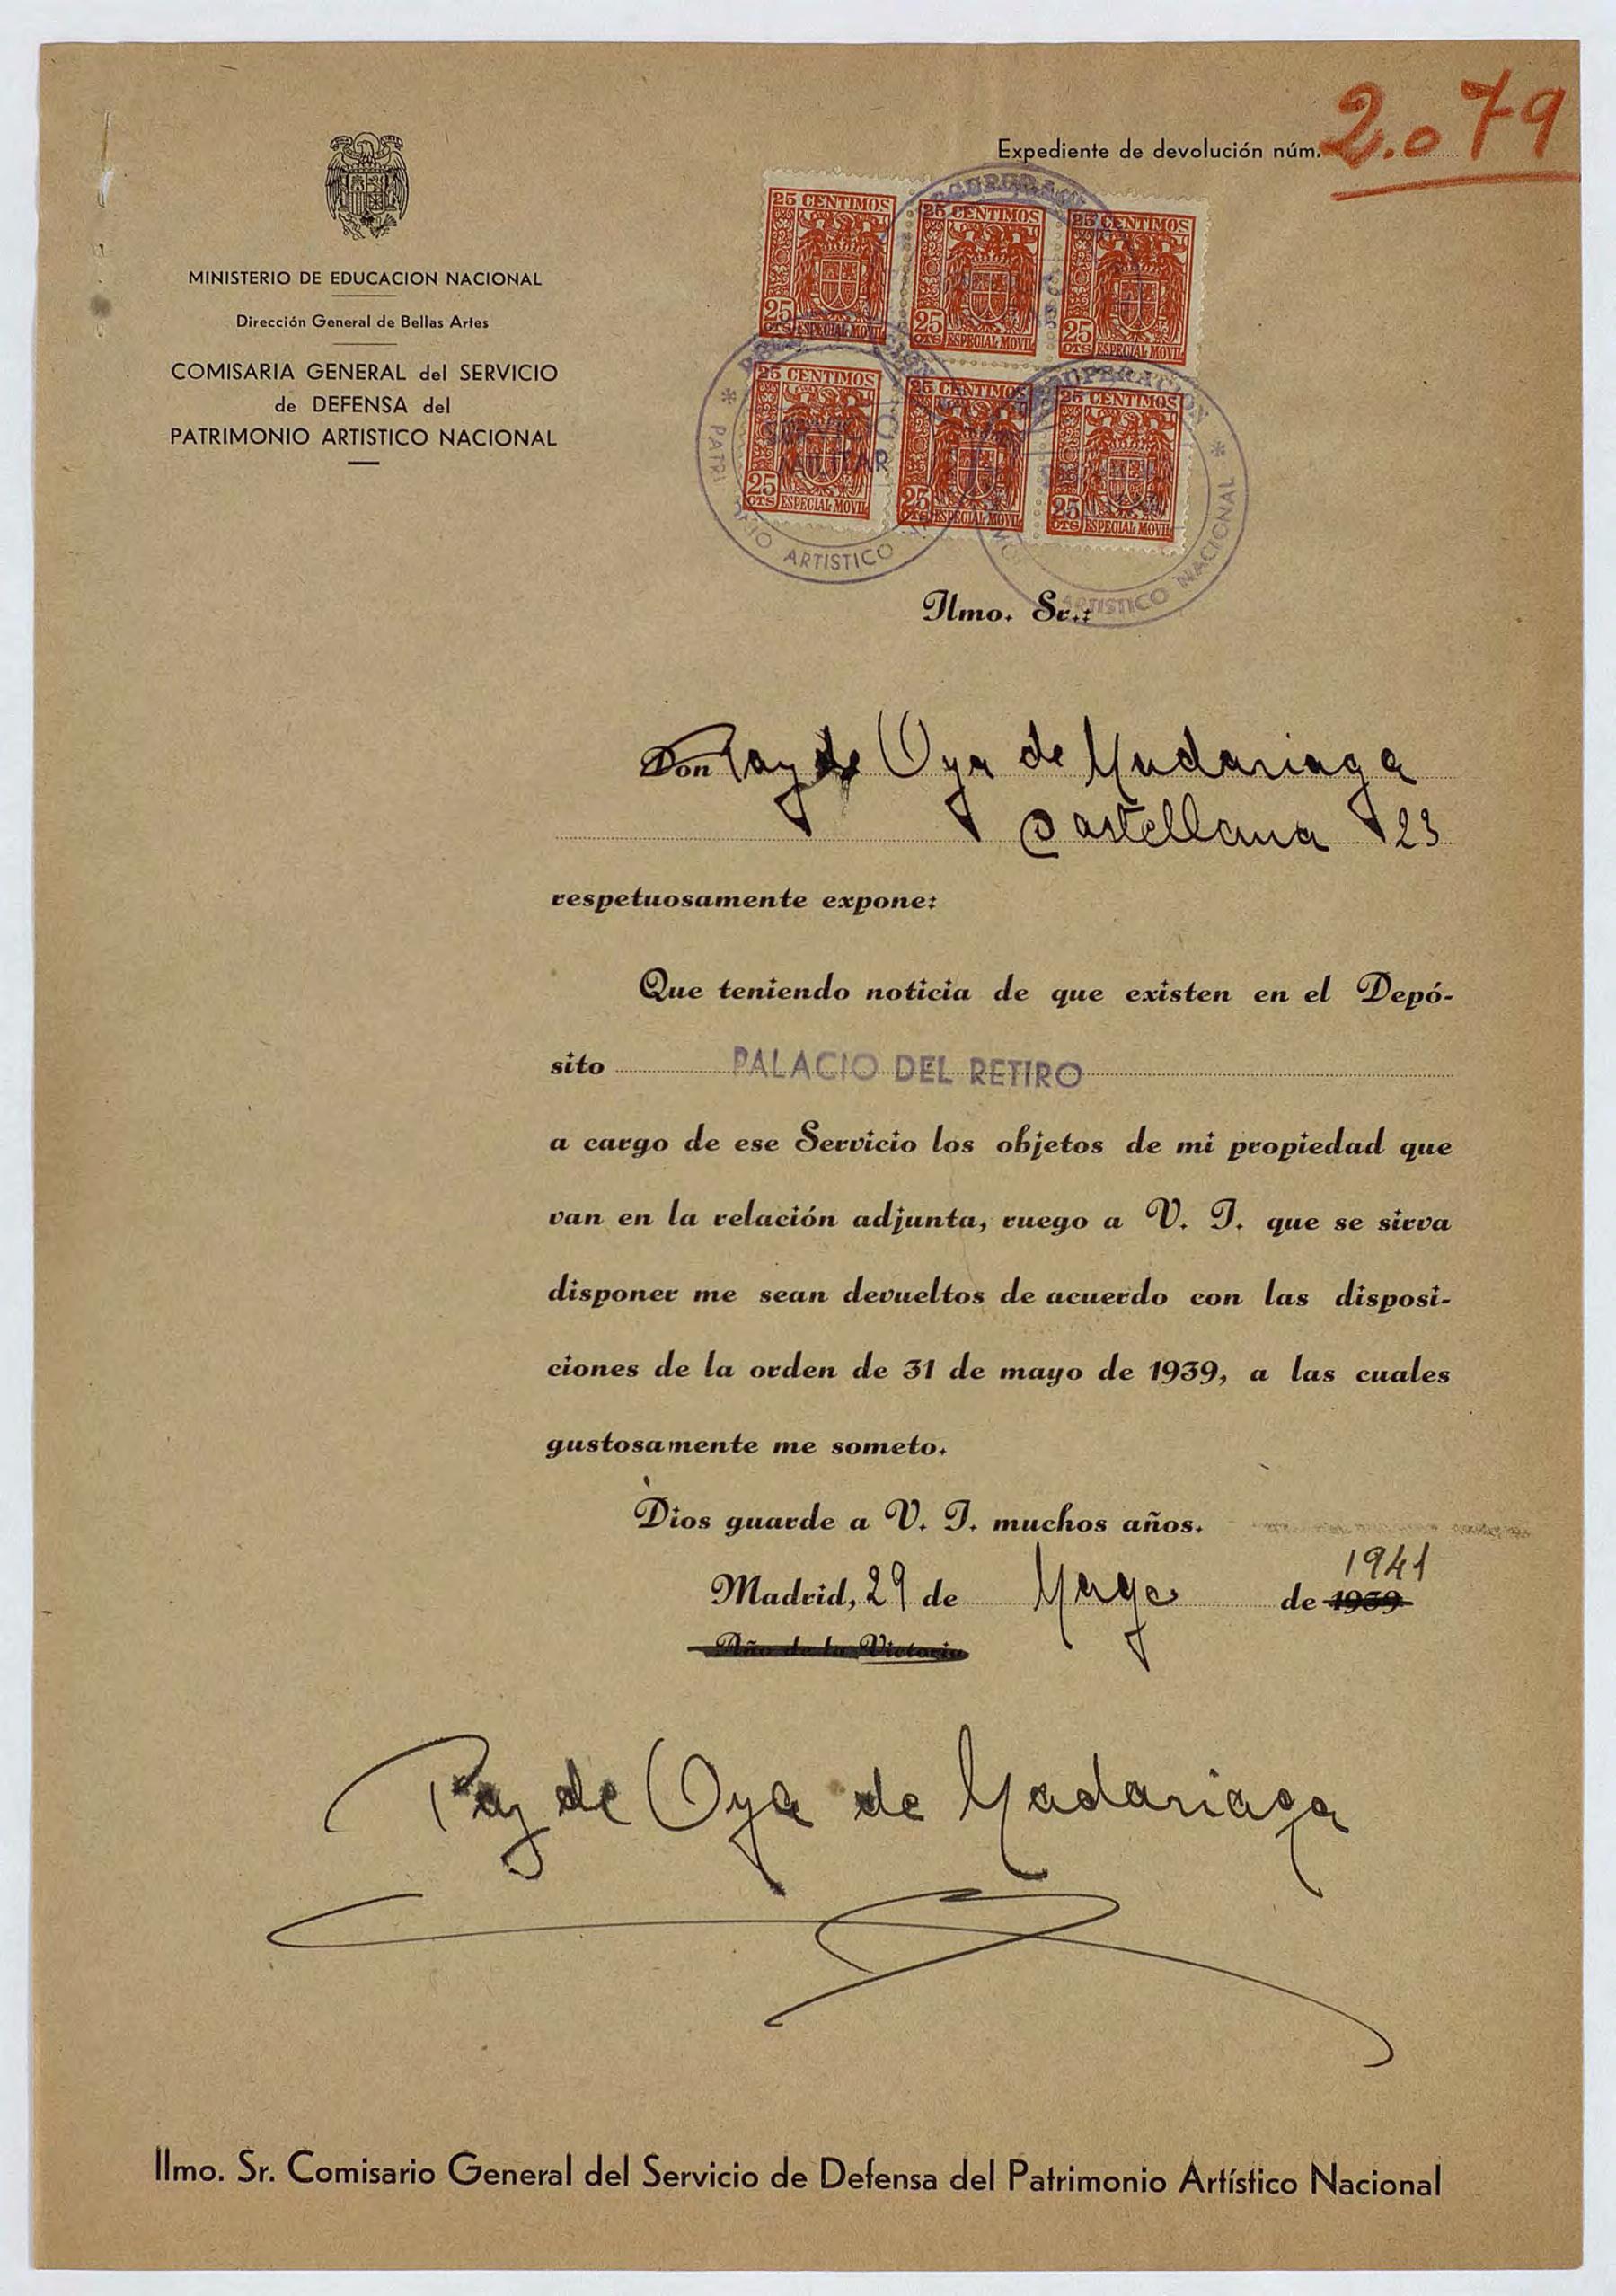 Expediente de devolución núm. 2.079
MINISTERIO DE EDUCACION NACIONAL
Dirección General de Bellas Artes
COMISARIA GENERAL del SERVICIO
de DEFENSA del
PATRIMONIO ARTISTICO NACIONAL
25 CENTIMOS 25 CENTIMOS 25 CENTIMOS
25 CTS ESPECIAL MOVIL 25 CTS ESPECIAL MOVIL 25 CTS ESPECIAL MOVIL
25 CENTIMOS 25 CENTIMOS 25 CENTIMOS
25 CTS ESPECIAL MOVIL 25 CTS ESPECIAL MOVIL 25 CTS ESPECIAL MOVIL
RECUPERACION
MILITAR
ARTISTICO
ARTISTICO NACIONAL
Ilmo. Sr.:
Don Paz de Oya de Madariaga
Castellana 23
respetuosamente expone:
Que teniendo noticia de que existen en el Depó-
sito PALACIO DEL RETIRO
a cargo de ese Servicio los objetos de mi propiedad que
van en la relación adjunta, ruego a V. I. que se sirva
disponer me sean devueltos de acuerdo con las disposi-
ciones de la orden de 31 de mayo de 1939, a las cuales
gustosamente me someto.
Dios guarde a V. I. muchos años.
1941
Madrid, 29 de Mayo de 1939
Año de la Victoria
Paz de Oya de Madariaga
Ilmo. Sr. Comisario General del Servicio de Defensa del Patrimonio Artístico Nacional